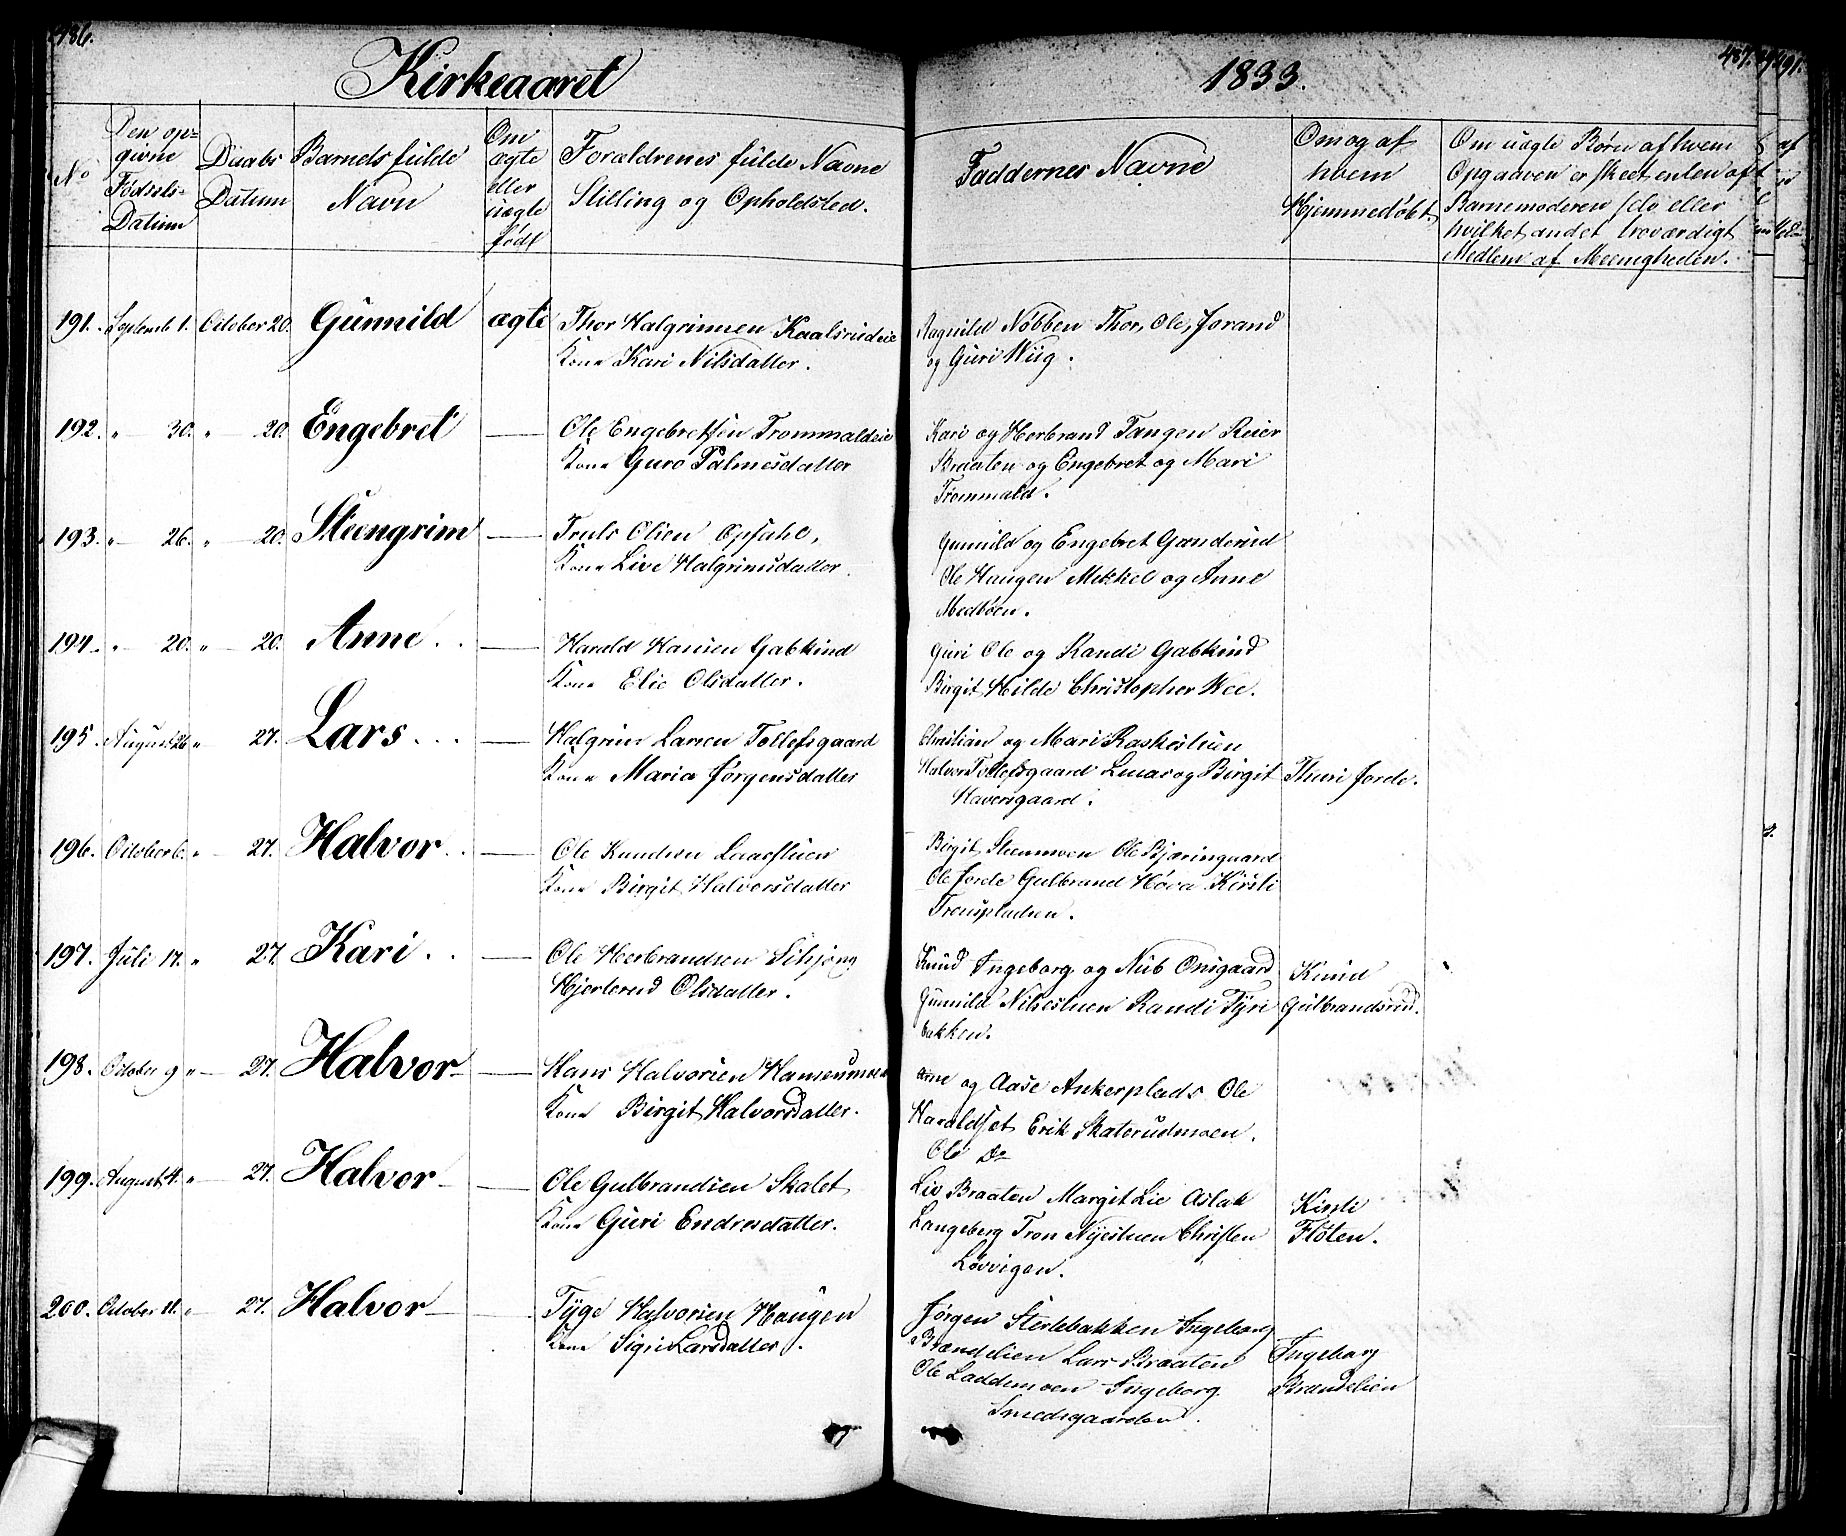 486.
Kirkeaaret
1833.
487.
No
Den op=
givne
Fødsels=
Datum
Daabs
Datum
Barnets fulde
Navn
Om
ægte
eller
uægte
født
Forældrenes fulde Navne
Stilling og Opholdsted.
Faddernes Navne
Om og af
hvem
Hjemmedøbt.
Om uægte Børn af hvem
Opgaaven er skeet enten af
Barnemoderen selv eller
hvilket andet troværdigt
Medlem af Meenigheden.
191. Septemb 1. October 20. Gunnild ægte Thor Halgrimsen Kaalsrudeie Ragnild Nobben Thor, Ole, Jorand
Kone Kari Nilsdatter. og Guri Wiig.
192. " 30. " 20. Engebret — Ole Engebretsen Trommaldeie Kari og Herbrand Tangen Reier
Kone Guro Palmesdatter Braaten og Engebret og Mari
Trommald.
193. " 26. " 20. Steengrim — Truls Olsen Opsahl, Gunnild og Engebret Ganderud
Kone Live Halgrimsdatter. Ole Haugen Mikkel og Anne
Medboen.
194. " 20. " 20. Anne — Harald Hansen Gabkind Guri Ole og Randi Gabkind
Kone Elie Olsdatter. Birgit Hilde Christopher Wee.
195. August 26 " 27. Lars — Halgrim Larsen Tollefsgaard Christian og Mari Raskestuen
Kone Maria Jørgensdatter Halvor Tollefsgaard Lucas og Birgit Thuri Jorde.
Haversgaard.
196. October 6. " 27. Halvor — Ole Knudsen Laarstuen Birgit Steenmoen Ole Bjæringaard
Kone Birgit Halvorsdatter Ole Jorde Gulbrand Hova Kirsti
Trompladsen.
197. Juli 17. " 27. Kari — Ole Herbrandsen Lihjong Knud Ingeborg og Nub Onsgaard Knud
Hjerterud Olsdatter. Gunnild Nilsestuen Randi Tyri Gulbrandsrud.
bakken.
198. October 9 " 27. Halvor — Hans Halvorsen Hansemoen Arne og Aase Ankerplads Ole
Kone Birgit Halvorsdatter. Haraldset Erik Skaterudmoen.
Ole Do
199. August 4. " 27. Halvor — Ole Gulbrandsen Skalet Liv Braaten Margit Lie Aslak Kirsti
Kone Guri Endresdatter. Langeberg Tron Nyestuen Christen Fløten.
Løvvigen.
200. October 11. " 27. Halvor — Tyge Halvorsen Haugen Jørgen Sterlebakken Ingeborg Ingeborg
Kone Sigri Larsdatter. Brændelien Lars Braaten Brændelien
Ole Laddemoen Ingeborg
Smedsgaarden.